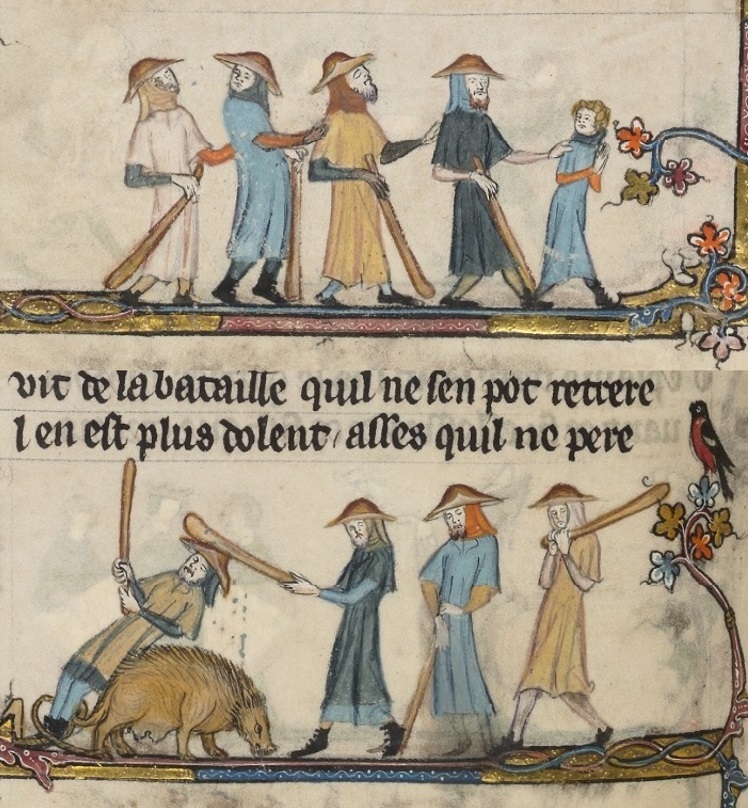 vit de la bataille quil ne sen pot retrere
l en est plus dolent / asses quil ne pere